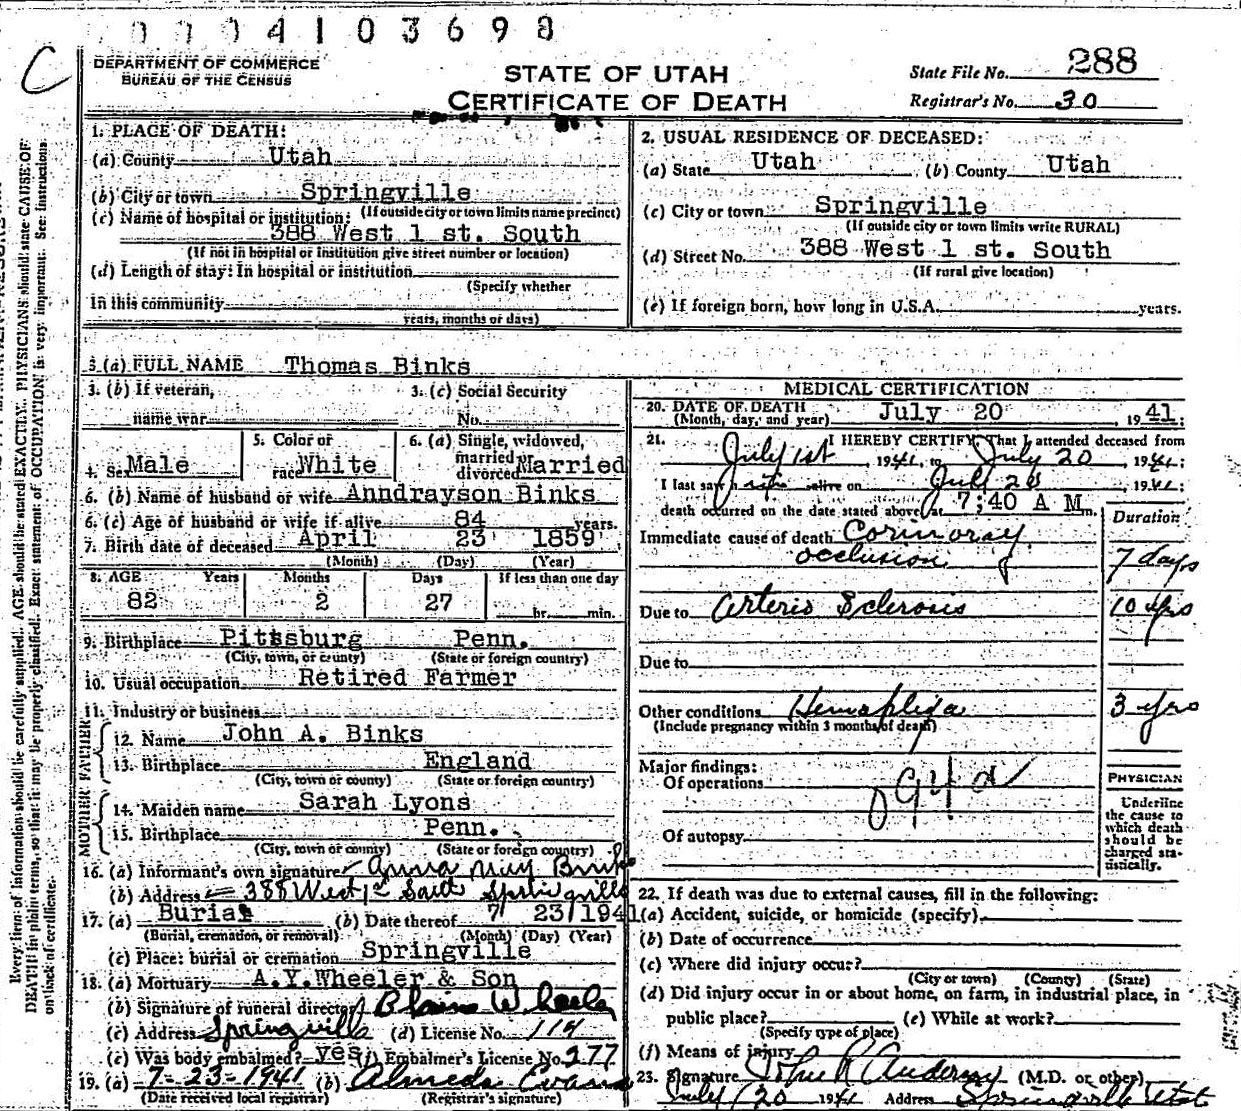 0004103698
C
DEPARTMENT OF COMMERCE
BUREAU OF THE CENSUS
STATE OF UTAH
CERTIFICATE OF DEATH
State File No. 288
Registrar's No. 30
1. PLACE OF DEATH:
(a) County Utah
(b) City or town Springville
(If outside city or town limits name precinct)
(c) Name of hospital or institution:
388 West 1 st. South
(If not in hospital or institution give street number or location)
(d) Length of stay: In hospital or institution
(Specify whether
In this community
years, months or days)
2. USUAL RESIDENCE OF DECEASED:
(a) State Utah (b) County Utah
(c) City or town Springville
(If outside city or town limits write RURAL)
(d) Street No. 388 West 1 st. South
(If rural give location)
(e) If foreign born, how long in U.S.A. years.
3 (a) FULL NAME Thomas Binks
3. (b) If veteran,
name war
3. (c) Social Security
No.
4. Sex Male
5. Color or
race White
6. (a) Single, widowed,
married or
divorced Married
6. (b) Name of husband or wife Anndrayson Binks
6. (c) Age of husband or wife if alive 84 years.
7. Birth date of deceased April 23 1859
(Month) (Day) (Year)
8. AGE Years Months Days If less than one day
82 2 27 hr. min.
9. Birthplace Pittsburg Penn.
(City, town, or county) (State or foreign country)
10. Usual occupation Retired Farmer
11. Industry or business
FATHER
12. Name John A. Binks
13. Birthplace England
(City, town or county) (State or foreign country)
MOTHER
14. Maiden name Sarah Lyons
15. Birthplace Penn.
(City, town or county) (State or foreign country)
16. (a) Informant's own signature Anna May Binks
(b) Address 388 West 1st South Springville
17. (a) Burial (b) Date thereof 7 23 1941
(Burial, cremation, or removal) (Month) (Day) (Year)
(c) Place: burial or cremation Springville
18. (a) Mortuary A.Y. Wheeler & Son
(b) Signature of funeral director Blaine Wheeler
(c) Address Springville (d) License No. 114
(e) Was body embalmed? yes (f) Embalmer's License No. 277
19. (a) 7-23-1941 (b) Almeda Evans
(Date received local registrar) (Registrar's signature)
MEDICAL CERTIFICATION
20. DATE OF DEATH July 20 1941;
(Month, day, and year)
21. I HEREBY CERTIFY, That I attended deceased from
July 1st 1941, to July 20 1941;
I last saw him alive on July 20 1941;
death occurred on the date stated above, at 7:40 A M m.
Duration
Immediate cause of death Corinoray
occlusion 7 days
Due to Arterio Sclerosis 10 yrs
Due to
Other conditions Hemaplida 3 yrs
(Include pregnancy within 3 months of death)
Major findings:
Of operations
94a
Of autopsy
PHYSICIAN
Underline
the cause to
which death
should be
charged sta-
tistically.
22. If death was due to external causes, fill in the following:
(a) Accident, suicide, or homicide (specify)
(b) Date of occurrence
(c) Where did injury occur?
(City or town) (County) (State)
(d) Did injury occur in or about home, on farm, in industrial place, in
public place? (e) While at work?
(Specify type of place)
(f) Means of injury
23. Signature John R Anderson (M.D. or other)
July 20 1941 Address Springville Utah
Every item of information should be carefully supplied. AGE should be stated EXACTLY. PHYSICIANS should state CAUSE OF
DEATH in plain terms, so that it may be properly classified. Exact statement of OCCUPATION is very important. See instructions
on back of certificate.